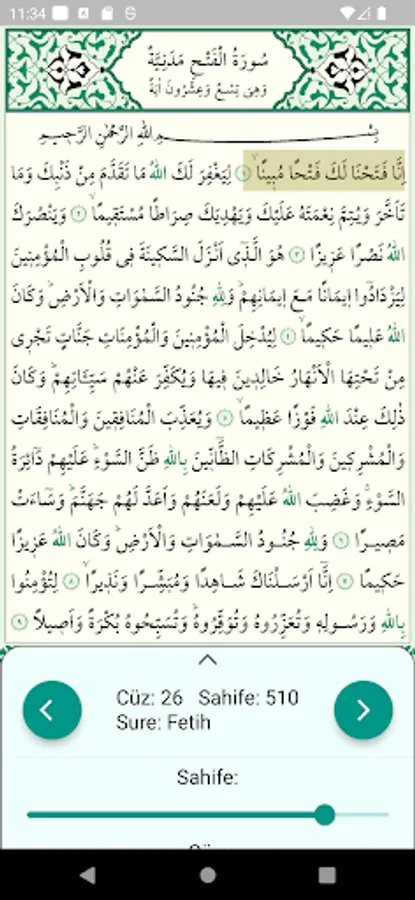 11:34
سُورَةُ الْفَتْحِ مَدَنِيَّةٌ
وَهِىَ تِسْعٌ وَعِشْرُونَ اٰيَةً
بِسْمِ اللّٰهِ الرَّحْمٰنِ الرَّحِيمِ
اِنَّا فَتَحْنَا لَكَ فَتْحًا مُبِينًاۙ ﴿١﴾ لِيَغْفِرَ لَكَ اللّٰهُ مَا تَقَدَّمَ مِنْ ذَنْبِكَ وَمَا
تَاَخَّرَ وَيُتِمَّ نِعْمَتَهُ عَلَيْكَ وَيَهْدِيَكَ صِرَاطًا مُسْتَقِيمًاۙ ﴿٢﴾ وَيَنْصُرَكَ
اللّٰهُ نَصْرًا عَزِيزًا ﴿٣﴾ هُوَ الَّذٖٓى اَنْزَلَ السَّكٖينَةَ فٖى قُلُوبِ الْمُؤْمِنٖينَ
لِيَزْدَادُٓوا اٖيمَانًا مَعَ اٖيمَانِهِمْؕ وَلِلّٰهِ جُنُودُ السَّمٰوَاتِ وَالْاَرْضِؕ وَكَانَ
اللّٰهُ عَلٖيمًا حَكٖيمًاۙ ﴿٤﴾ لِيُدْخِلَ الْمُؤْمِنٖينَ وَالْمُؤْمِنَاتِ جَنَّاتٍ تَجْرٖى
مِنْ تَحْتِهَا الْاَنْهَارُ خَالِدٖينَ فٖيهَا وَيُكَفِّرَ عَنْهُمْ سَيِّـَٔاتِهِمْؕ وَكَانَ
ذٰلِكَ عِنْدَ اللّٰهِ فَوْزًا عَظٖيمًاۙ ﴿٥﴾ وَيُعَذِّبَ الْمُنَافِقٖينَ وَالْمُنَافِقَاتِ
وَالْمُشْرِكٖينَ وَالْمُشْرِكَاتِ الظَّٓانّٖينَ بِاللّٰهِ ظَنَّ السَّوْءِؕ عَلَيْهِمْ دَٓائِرَةُ
السَّوْءِۚ وَغَضِبَ اللّٰهُ عَلَيْهِمْ وَلَعَنَهُمْ وَاَعَدَّ لَهُمْ جَهَنَّمَؕ وَسَٓاءَتْ
مَصٖيرًا ﴿٦﴾ وَلِلّٰهِ جُنُودُ السَّمٰوَاتِ وَالْاَرْضِؕ وَكَانَ اللّٰهُ عَزٖيزًا
حَكٖيمًا ﴿٧﴾ اِنَّٓا اَرْسَلْنَاكَ شَاهِدًا وَمُبَشِّرًا وَنَذٖيرًاۙ ﴿٨﴾ لِتُؤْمِنُوا
بِاللّٰهِ وَرَسُولِهٖ وَتُعَزِّرُوهُ وَتُوَقِّرُوهُؕ وَتُسَبِّحُوهُ بُكْرَةً وَاَصٖيلًا ﴿٩﴾
Cüz: 26 Sahife: 510
Sure: Fetih
Sahife: